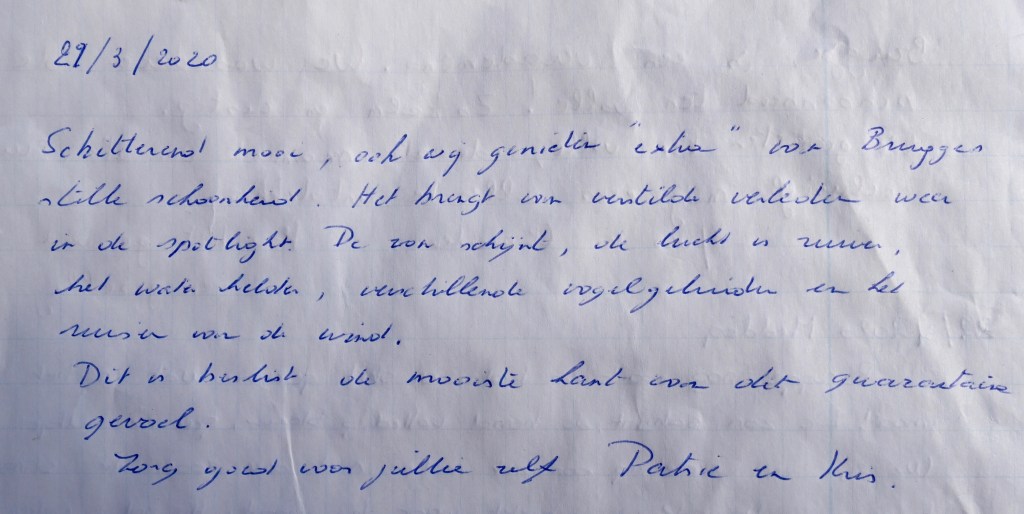 29/3/2020
Schitterend mooi, ook wij genieten "extra" van Brugges
stille schoonheid. Het brengt van verstilde verleden weer
in de spotlight. De zon schijnt, de lucht is zuiver,
het water helder, verschillende vogelgeluiden en het
ruisen van de wind.
Dit is beslist de mooiste kant van dit quarantaine
gevoel.
Zorg goed voor jullie zelf Patric en Kris.